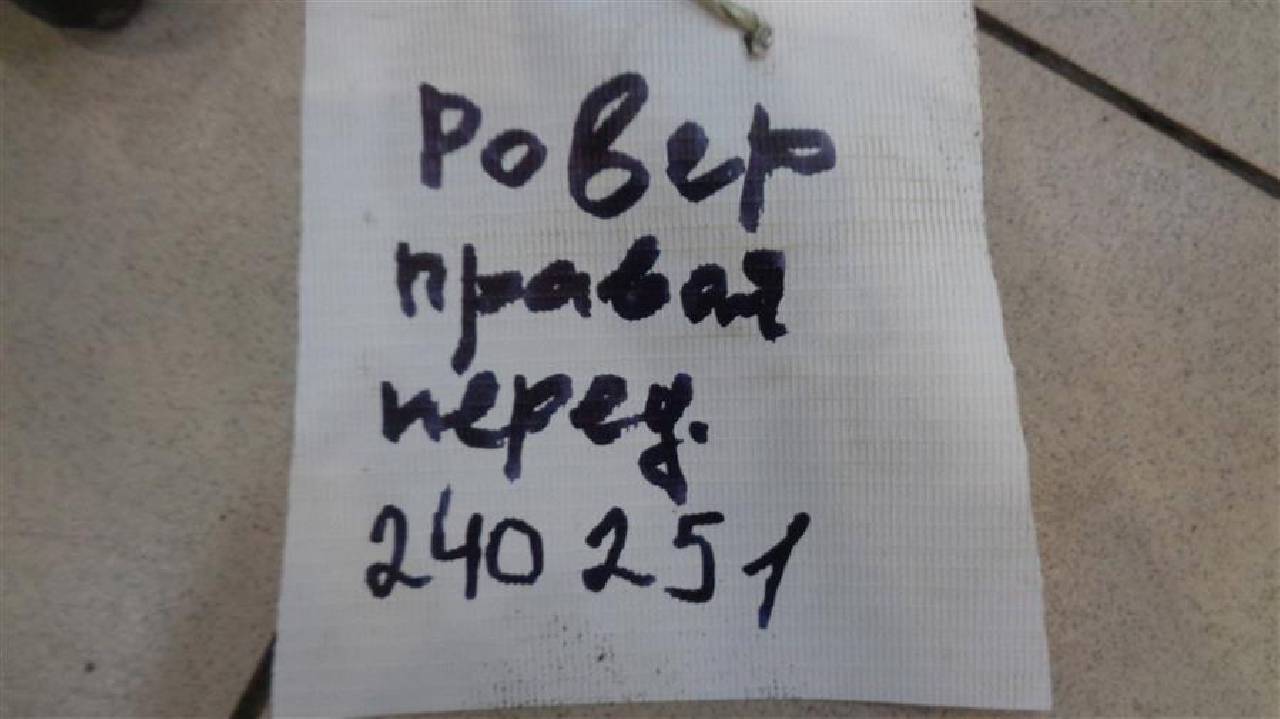 Ровер
правая
перед.
240251